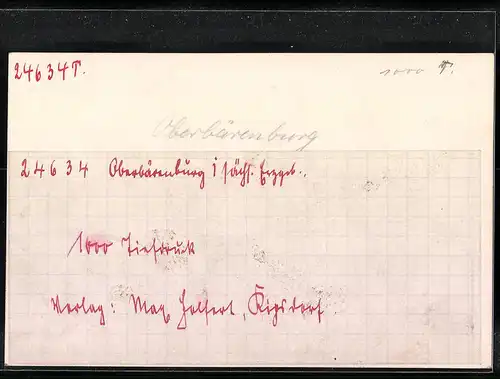 24634T. 1000 T.
Oberbärenburg
24634 Oberbärenburg i sächs. Erzgeb.
1000 Tiefdruck
Verlag: Max Helfert, Kipsdorf.